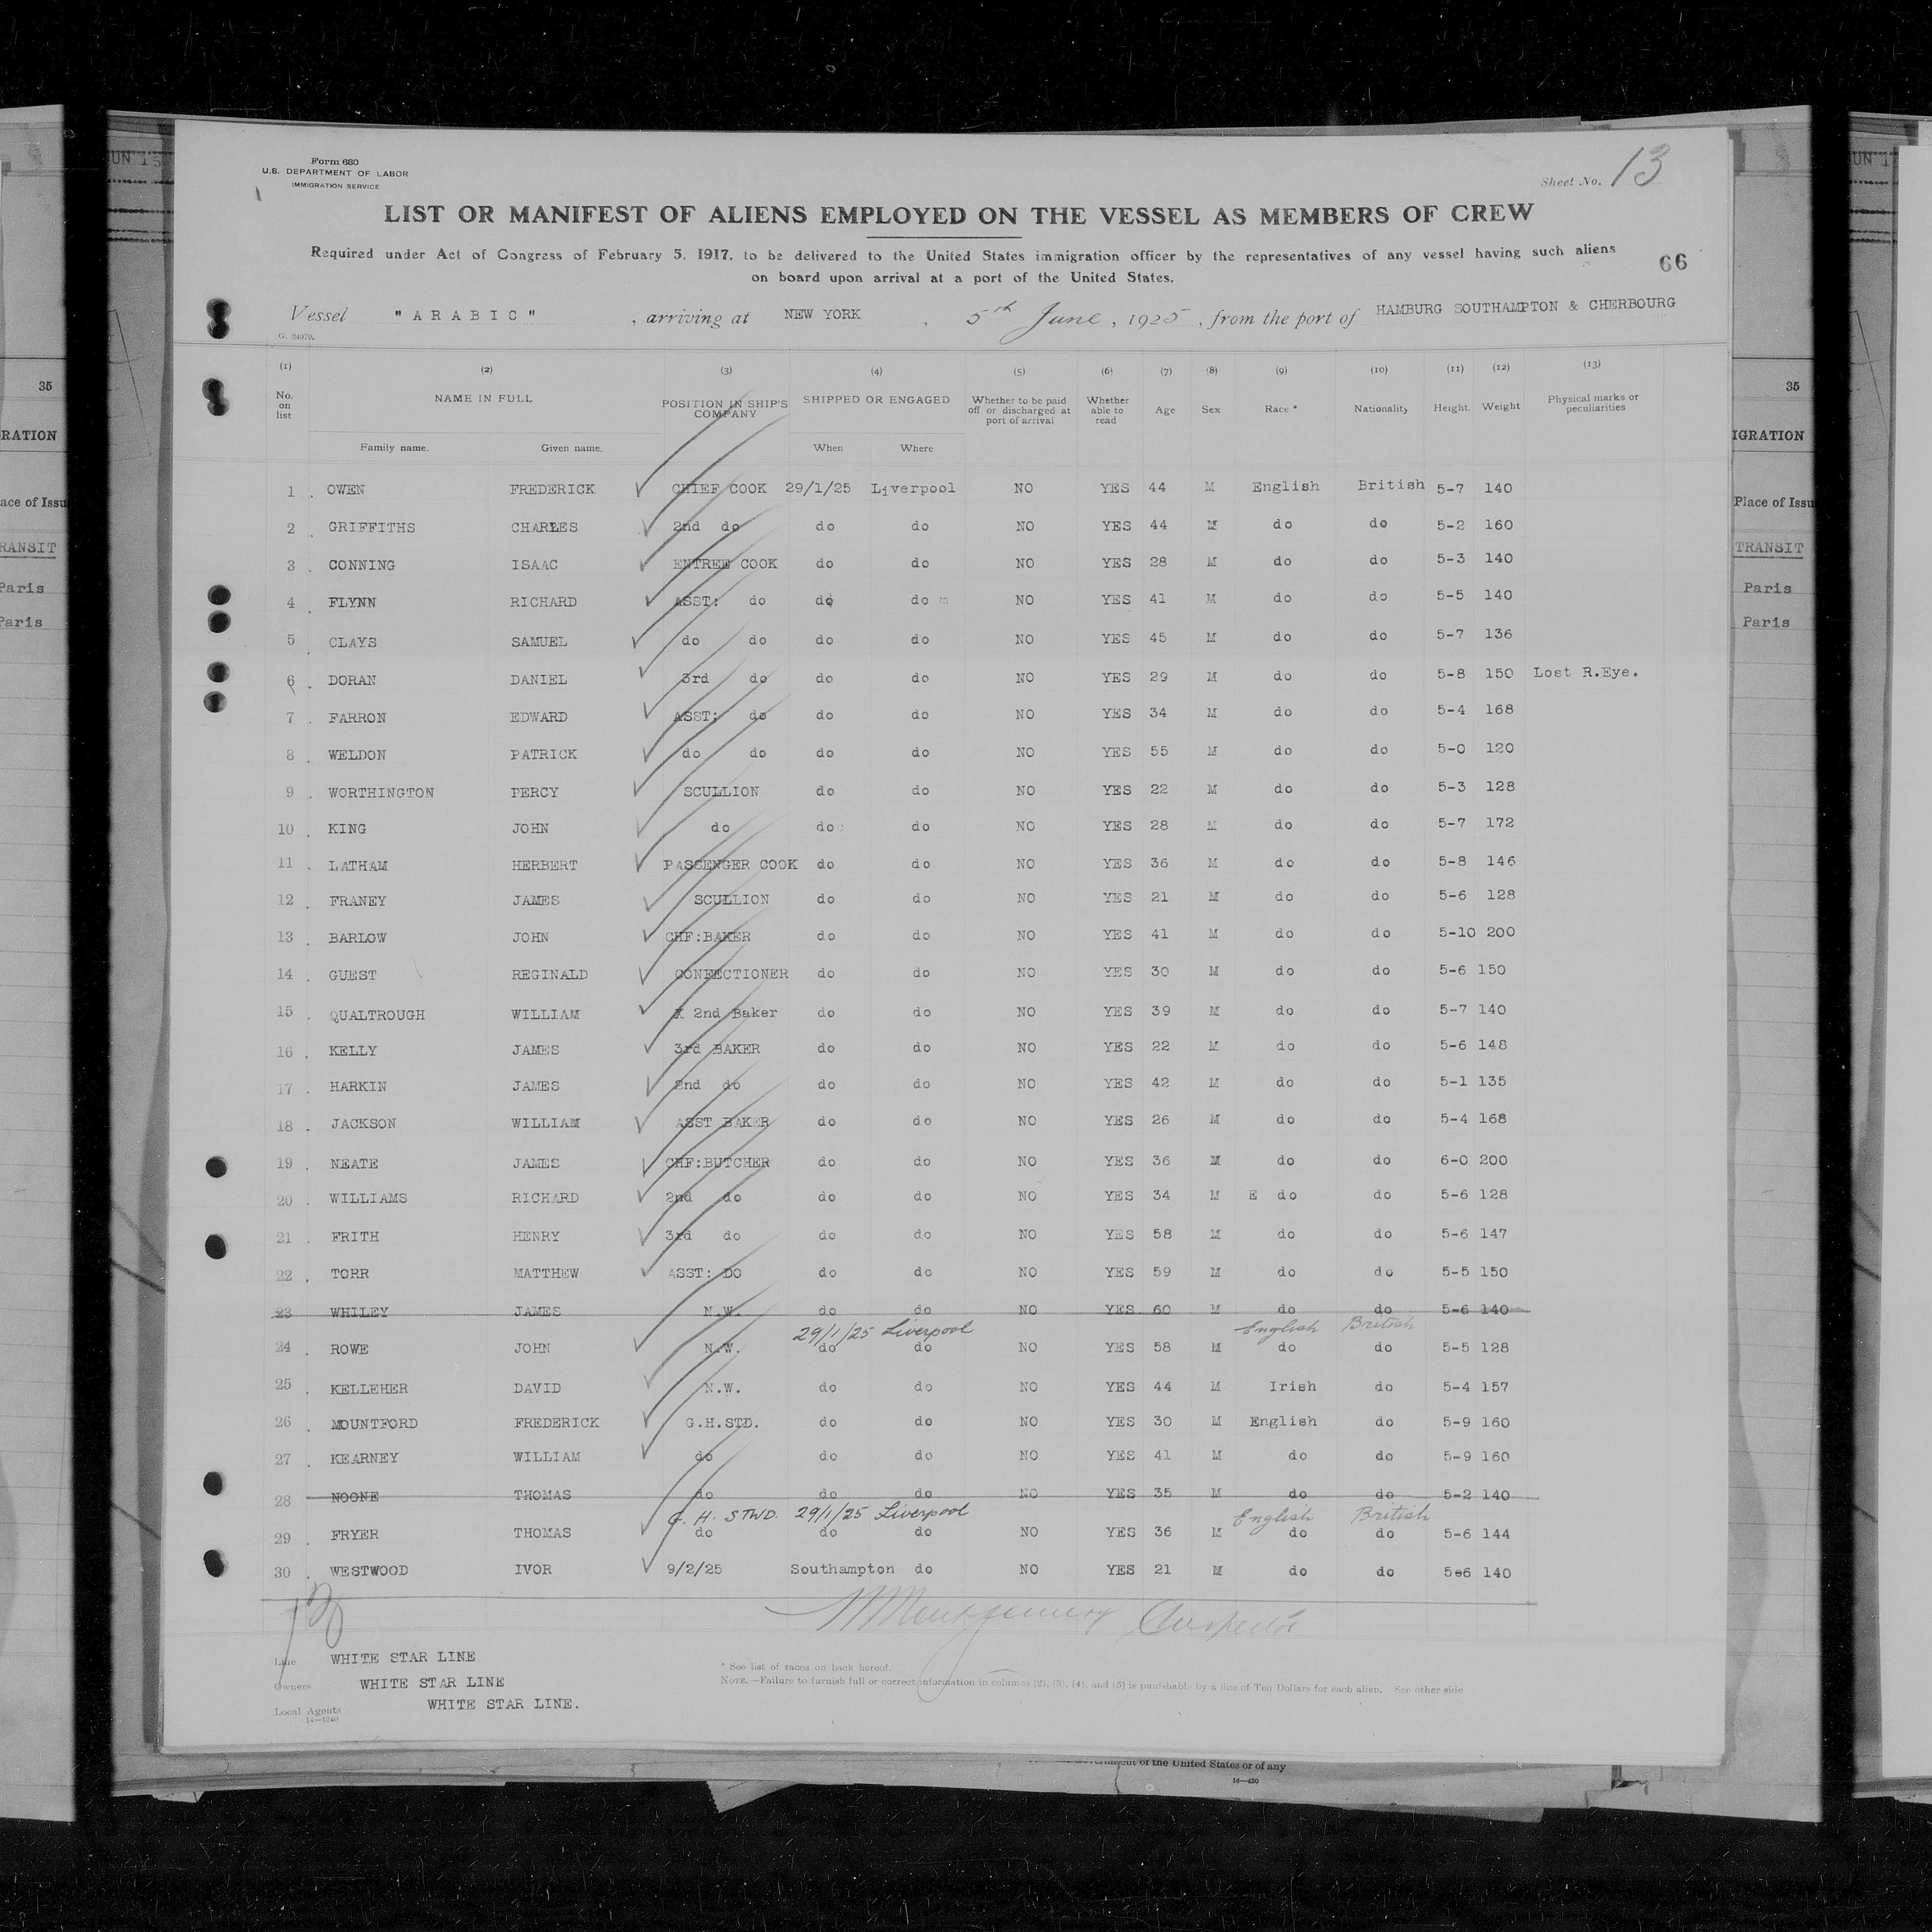 Form 680
U.S. DEPARTMENT OF LABOR
IMMIGRATION SERVICE
Sheet No. 13
LIST OR MANIFEST OF ALIENS EMPLOYED ON THE VESSEL AS MEMBERS OF CREW
Required under Act of Congress of February 5, 1917, to be delivered to the United States immigration officer by the representatives of any vessel having such aliens
on board upon arrival at a port of the United States.
66
Vessel "ARABIC" , arriving at NEW YORK , 5th June, 1925, from the port of HAMBURG SOUTHAMPTON & CHERBOURG
G. 24979.
(1) (2) (3) (4) (5) (6) (7) (8) (9) (10) (11) (12) (13)
No. on list NAME IN FULL POSITION IN SHIP'S COMPANY SHIPPED OR ENGAGED Whether to be paid off or discharged at port of arrival Whether able to read Age Sex Race * Nationality Height. Weight Physical marks or peculiarities
Family name. Given name. When Where
1 . OWEN FREDERICK CHIEF COOK 29/1/25 Liverpool NO YES 44 M English British 5-7 140
2 . GRIFFITHS CHARLES 2nd do do do NO YES 44 M do do 5-2 160
3 . CONNING ISAAC ENTREE COOK do do NO YES 28 M do do 5-3 140
4 . FLYNN RICHARD ASST: do do do NO YES 41 M do do 5-5 140
5 . CLAYS SAMUEL do do do do NO YES 45 M do do 5-7 136
6 . DORAN DANIEL 3rd do do do NO YES 29 M do do 5-8 150 Lost R.Eye.
7 . FARRON EDWARD ASST: do do do NO YES 34 M do do 5-4 168
8 . WELDON PATRICK do do do do NO YES 55 M do do 5-0 120
9 . WORTHINGTON PERCY SCULLION do do NO YES 22 M do do 5-3 128
10 . KING JOHN do do do NO YES 28 M do do 5-7 172
11 . LATHAM HERBERT PASSENGER COOK do do NO YES 36 M do do 5-8 146
12 . FRANEY JAMES SCULLION do do NO YES 21 M do do 5-6 128
13 . BARLOW JOHN CHF:BAKER do do NO YES 41 M do do 5-10 200
14 . GUEST REGINALD CONFECTIONER do do NO YES 30 M do do 5-6 150
15 . QUALTROUGH WILLIAM X 2nd Baker do do NO YES 39 M do do 5-7 140
16 . KELLY JAMES 3rd BAKER do do NO YES 22 M do do 5-6 148
17 . HARKIN JAMES 2nd do do do NO YES 42 M do do 5-1 135
18 . JACKSON WILLIAM ASST BAKER do do NO YES 26 M do do 5-4 168
19 . NEATE JAMES CHF:BUTCHER do do NO YES 36 M do do 6-0 200
20 . WILLIAMS RICHARD 2nd do do do NO YES 34 M E do do 5-6 128
21 . FRITH HENRY 3rd do do do NO YES 58 M do do 5-6 147
22 . TORR MATTHEW ASST: DO do do NO YES 59 M do do 5-5 150
23 WHILEY JAMES N.W. do do NO YES 60 M do do 5-6 140
29/1/25 Liverpool English British
24 . ROWE JOHN N.W. do do NO YES 58 M do do 5-5 128
25 . KELLEHER DAVID N.W. do do NO YES 44 M Irish do 5-4 157
26 . MOUNTFORD FREDERICK G.H.STD. do do NO YES 30 M English do 5-9 160
27 . KEARNEY WILLIAM do do do NO YES 41 M do do 5-9 160
28 NOONE THOMAS do do do NO YES 35 M do do 5-2 140
G. H. STWD. 29/1/25 Liverpool English British
29 . FRYER THOMAS do do do NO YES 36 M do do 5-6 144
30 . WESTWOOD IVOR 9/2/25 Southampton do NO YES 21 M do do 5-6 140
Montgomery
Line WHITE STAR LINE
Owners WHITE STAR LINE
Local Agents WHITE STAR LINE.
14—1240
* See list of races on back hereof.
NOTE.—Failure to furnish full or correct information in columns (2), (3), (4), and (5) is punishable by a fine of Ten Dollars for each alien. See other side
of the United States or of any
14—430
35
RATION
ace of Issu
RANSIT
Paris
Paris
35
IGRATION
Place of Issu
TRANSIT
Paris
Paris